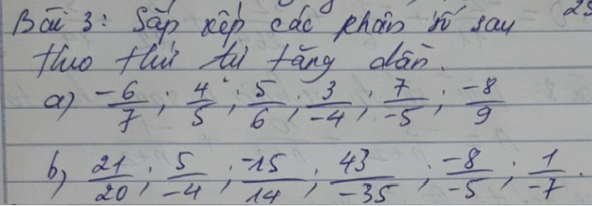 Bài 3: Sắp xếp các phân số sau 25
theo thứ tự tăng dần.
a) -6/7 ; 4/5 ; 5/6 ; 3/-4 ; 7/-5 ; -8/9
b, 21/20 ; 5/-4 ; -15/14 ; 43/-35 ; -8/-5 ; 1/-7.